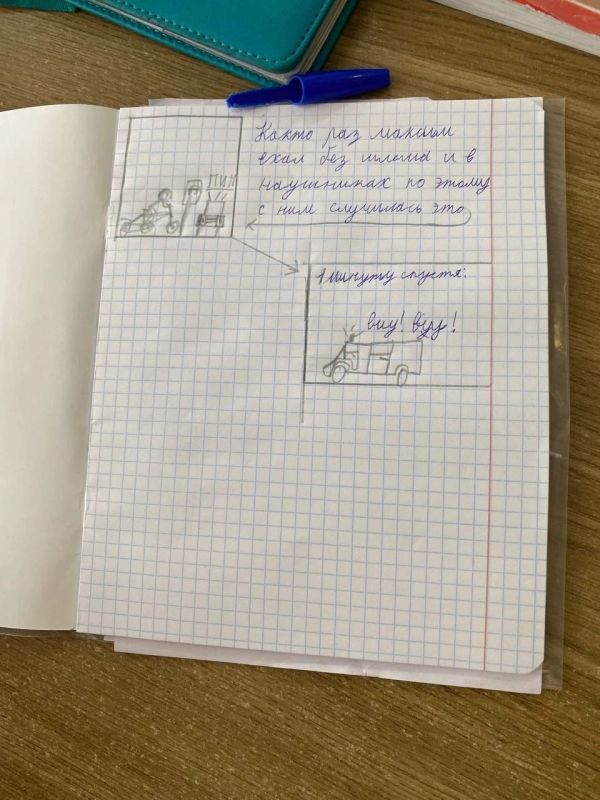 Както раз максим
ехал без шлема и в
наушниках по этому
с ним случилась это
ПИП
1 минуту спустя:
виу! виу!